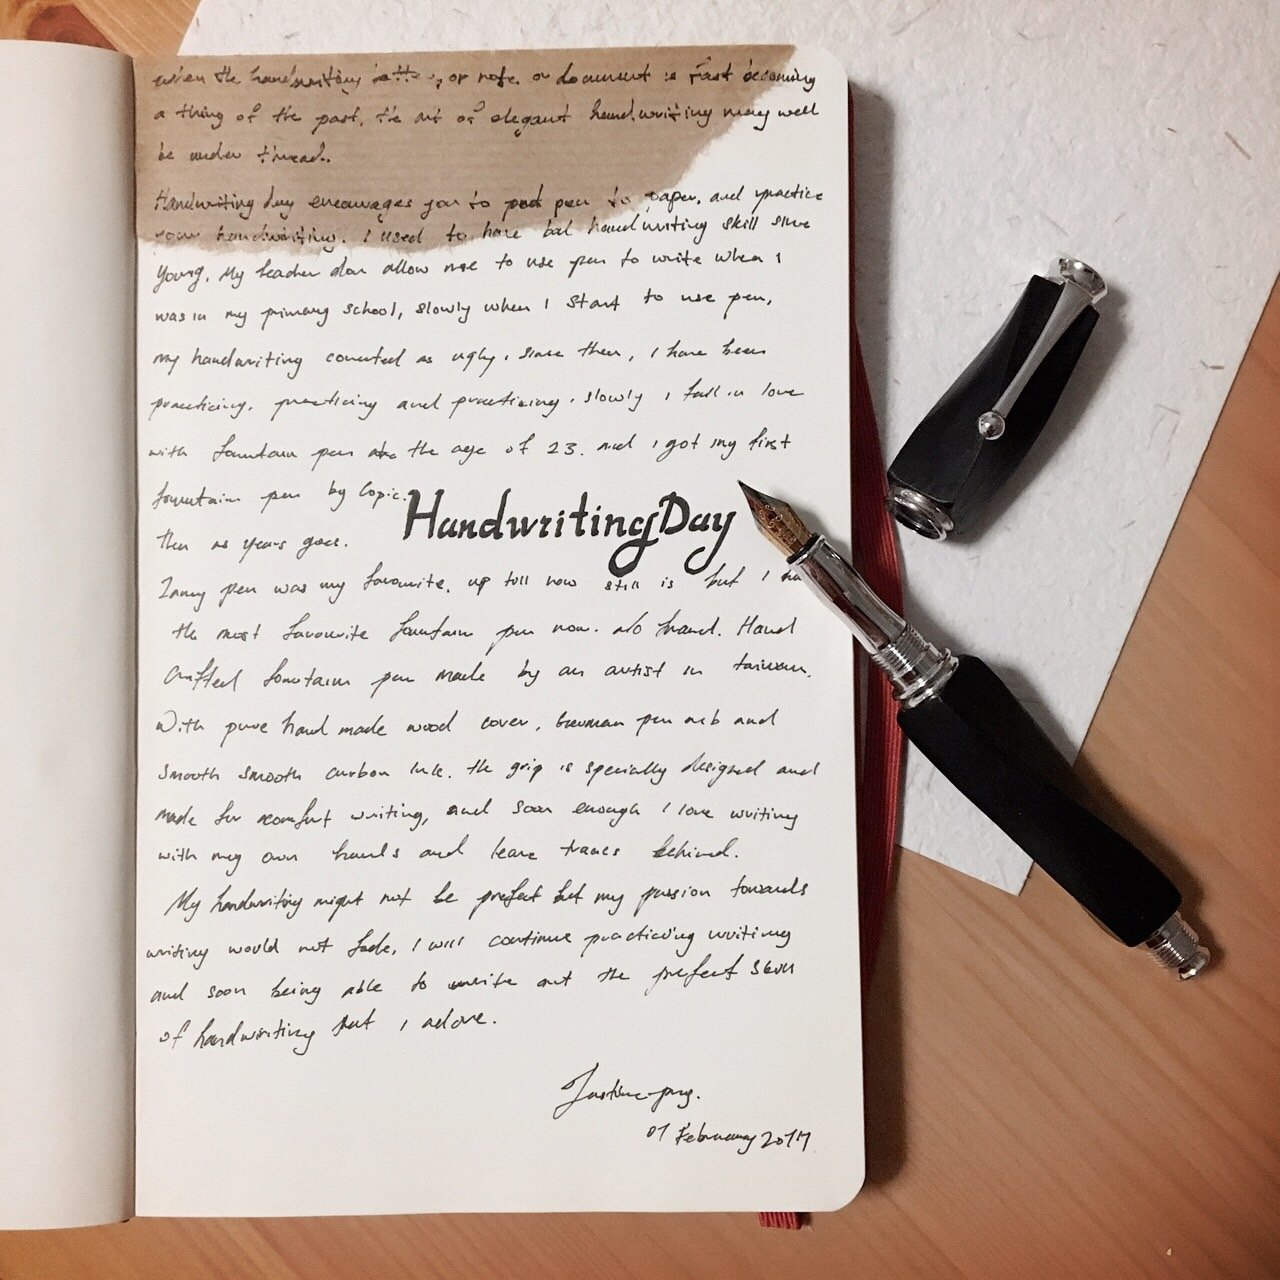 when the handwriting letter, or note or document is fast becoming
a thing of the past, the art of elegant handwriting may well
be under thread.
Handwriting day encourages you to pen to paper, and practice
your handwriting. I used to have bad handwriting skill since
young. My teacher don allow me to use pen to write when I
was in my primary school, slowly when I start to use pen,
my handwriting counted as ugly. since then, I have been
practicing. practicing and practicing. slowly I fall in love
with fountain pen the age of 23. and I got my first
fountain pen by Copic.
HandwritingDay
then as years goes.
Lamy pen was my favourite. up till now still is but I
the most favourite fountain pen now. No brand. Hand
crafted fountain pen made by an artist in taiwan.
With pure hand made wood cover, German pen nib and
smooth smooth carbon ink. the grip is specially designed and
made for comfort writing, and soon enough I love writing
with my own hands and leave traces behind.
My handwriting might not be prefect but my passion towards
writing would not fade, I will continue practicing writing
and soon being able to write out the prefect skill
of handwriting that I adore.
01 February 2017